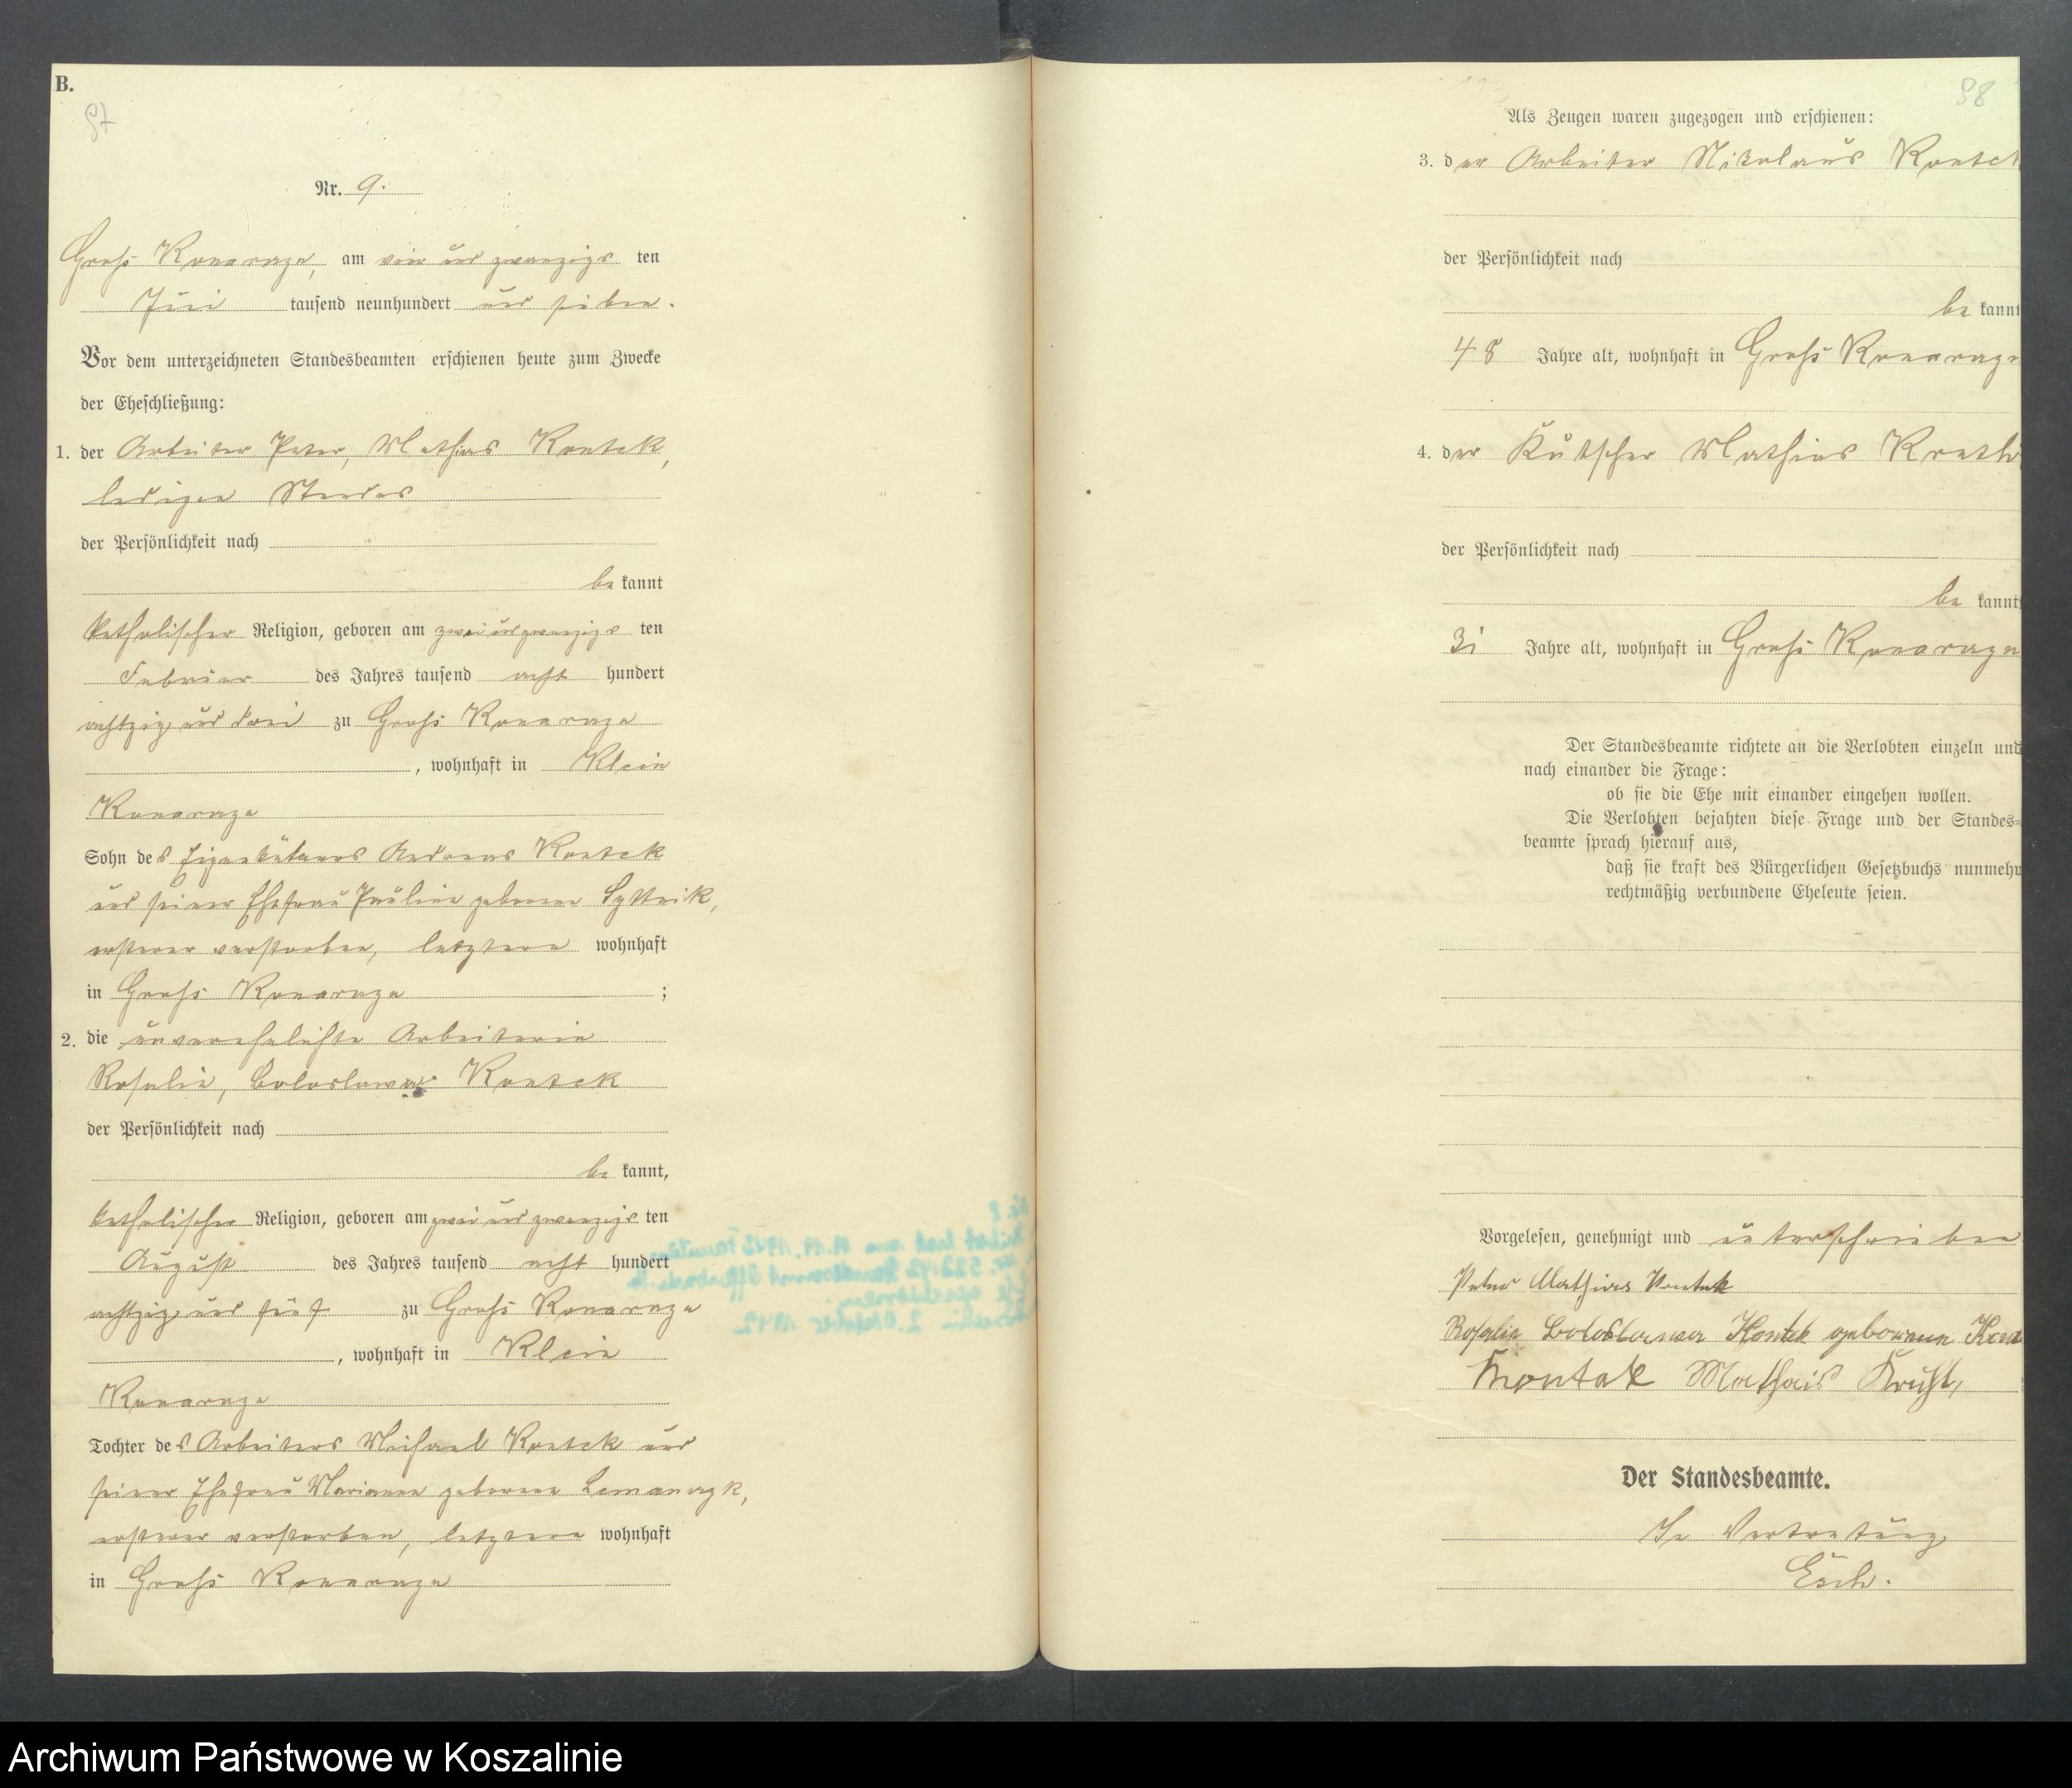 B.
87
Nr. 9.
Groß Konarzyn, am vier und zwanzigs ten
Juni tausend neunhundert und sieben.
Vor dem unterzeichneten Standesbeamten erschienen heute zum Zwecke
der Eheschließung:
1. der Arbeiter Peter, Mathias Kontek,
ledigen Standes
der Persönlichkeit nach
be kannt
katholischer Religion, geboren am zwei und zwanzigs ten
Februar des Jahres tausend acht hundert
achtzig und drei zu Groß Konarzyn
, wohnhaft in Klein
Konarzyn
Sohn des Eigentümers Andreas Kontek
und seiner Ehefrau Pauline geborene
ersterer verstorben, letztere wohnhaft
in Groß Konarzyn ;
2. die unverehelichte Arbeiterin
Rosalie, Boleslawa Kontek
der Persönlichkeit nach
be kannt,
katholischer Religion, geboren am zwei und zwanzigs ten
August des Jahres tausend acht hundert
achtzig und fünf zu Groß Konarzyn
, wohnhaft in Klein
Konarzyn
Tochter des Arbeiters Michael Kontek und
seiner Ehefrau Marianna geborene Lemanczyk,
ersterer verstorben, letztere wohnhaft
in Groß Konarzyn
88
Als Zeugen waren zugezogen und erschienen:
3. der Arbeiter Nikolaus Kontek
der Persönlichkeit nach
be kannt
48 Jahre alt, wohnhaft in Groß Konarzyn
4. der Kutscher Mathias
der Persönlichkeit nach
be kannt
31 Jahre alt, wohnhaft in Groß Konarzyn
Der Standesbeamte richtete an die Verlobten einzeln und
nach einander die Frage:
ob sie die Ehe mit einander eingehen wollen.
Die Verlobten bejahten diese Frage und der Standes-
beamte sprach hierauf aus,
daß sie kraft des Bürgerlichen Gesetzbuchs nunmehr
rechtmäßig verbundene Eheleute seien.
Vorgelesen, genehmigt und unterschrieben
Peter Mathias Kontek
Rosalie Boleslawa Kontek geborenen
Kontek
Der Standesbeamte.
In Vertretung
Esch.
Archiwum Państwowe w Koszalinie